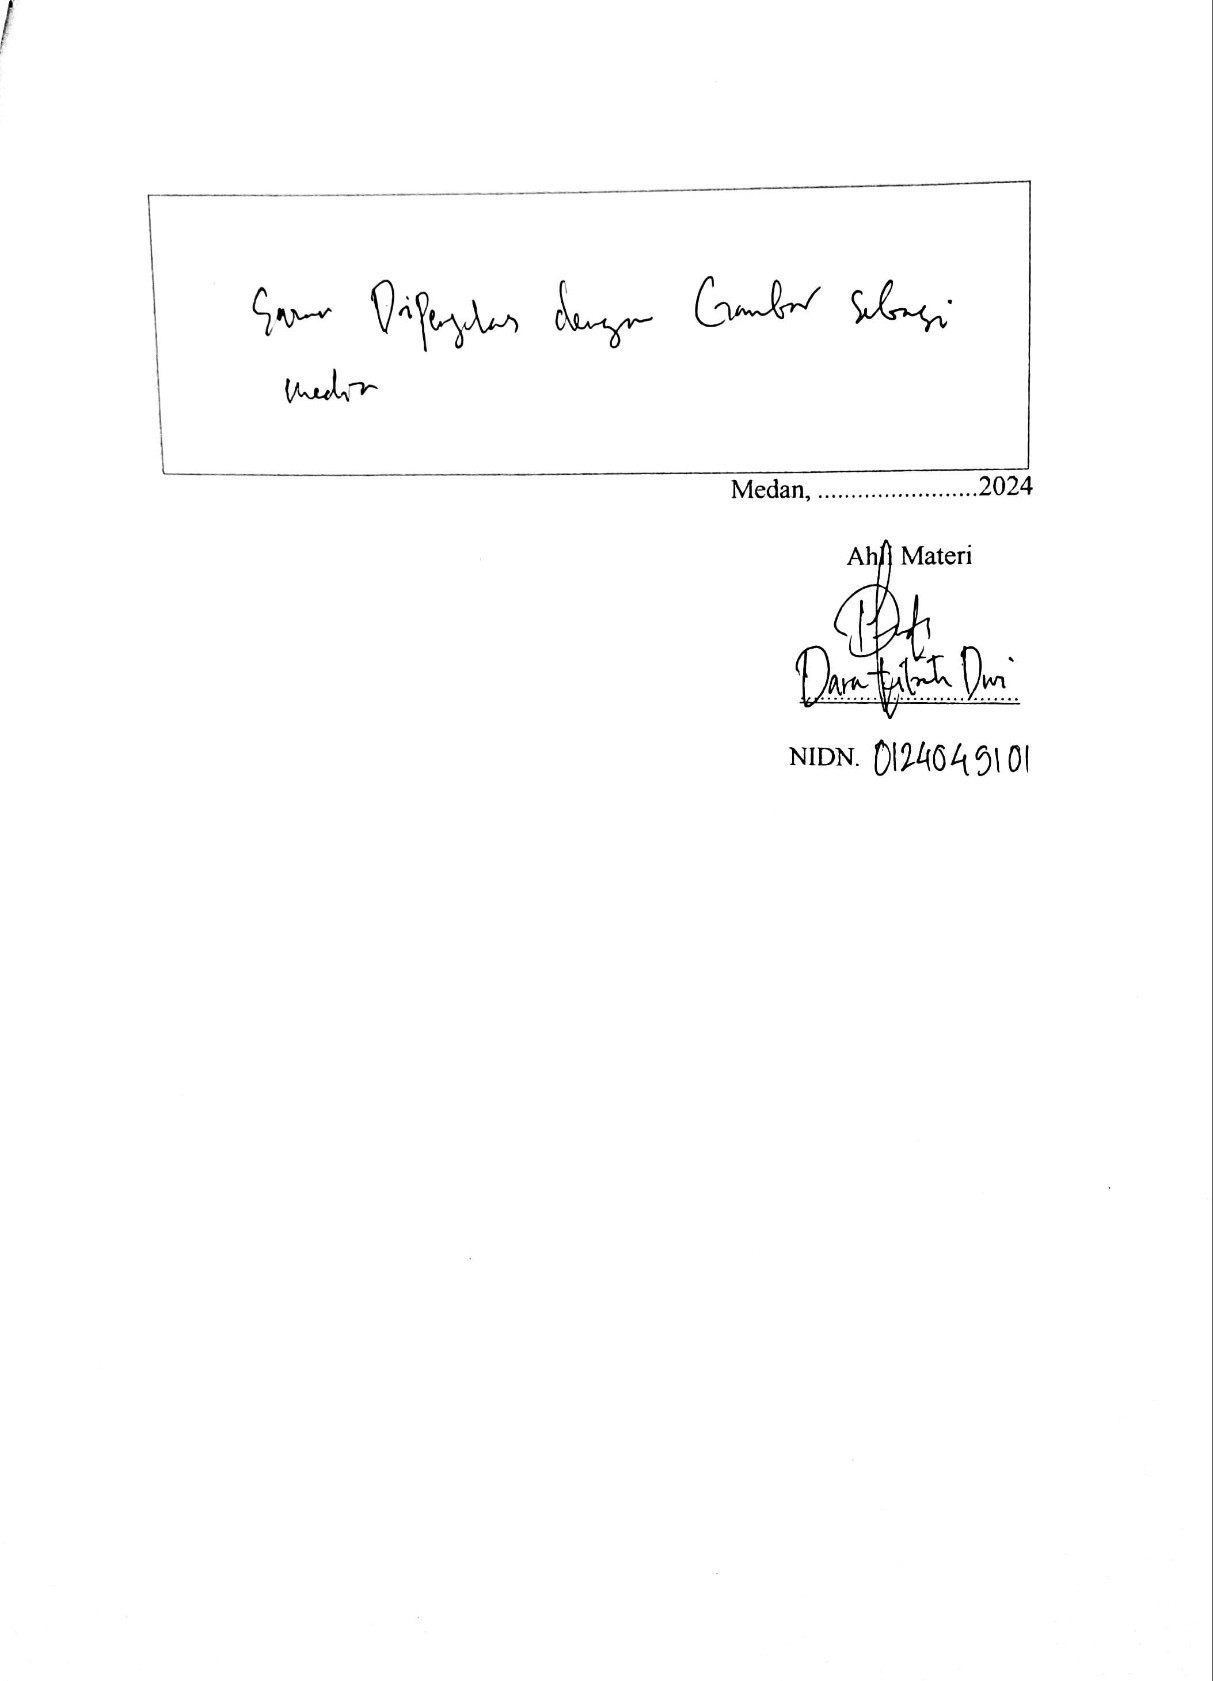 Saran Diperjelas dengan Gambar sebagai
media
Medan, ........................2024
Ahli Materi
Dara Dwi
NIDN. 0124049101